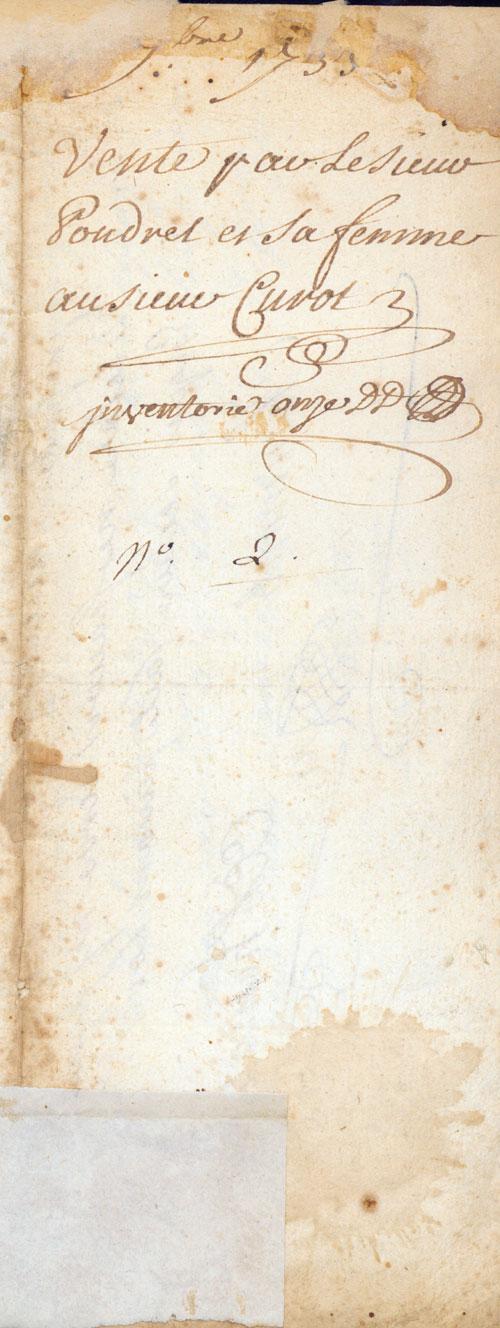 7.bre 1733
Vente par Le sieur
Poudret et sa femme
au sieur Curot
jnventorié onze DD
No. 2.